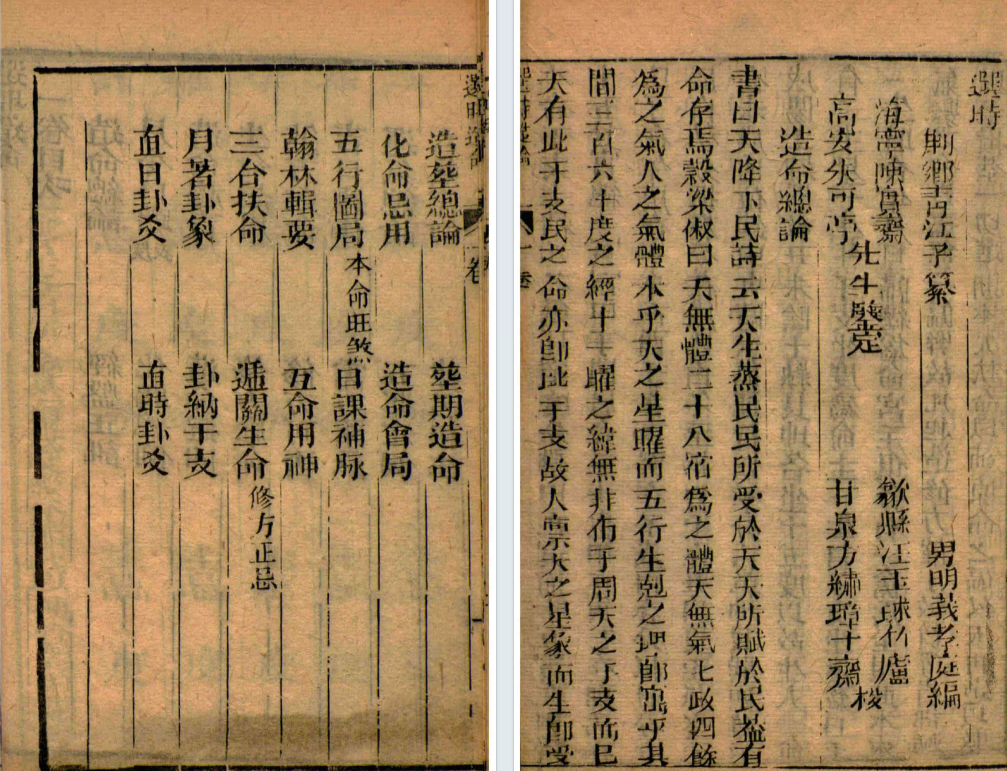 選時
荆鄉青江子纂
男明義孝庭編
海寧陳昌齋
歙縣汪玉球竹廬
高安朱可亭
先生鑒定
甘泉方繡璋十齋
校
造命總論
書曰天降下民詩云天生蒸民民所受於天天所賦於民葢有
命存焉穀梁俶曰天無體二十八宿為之體天無氣七政四餘
為之氣人之氣體本乎天之星曜而五行生剋之理即寓乎其
間三百六十度之經十一曜之緯無非佈于周天之干支而已
天有此干支民之命亦即此干支故人禀天之星象而生即受
卷
造塟總論 塟期造命
化命忌用 造命會局
五行圖局 本命旺煞 日課補脉
翰林輯要 互命用神
三台扶命 遁關生命 修方正忌
月著卦象 卦納干支
直日卦爻 直時卦爻